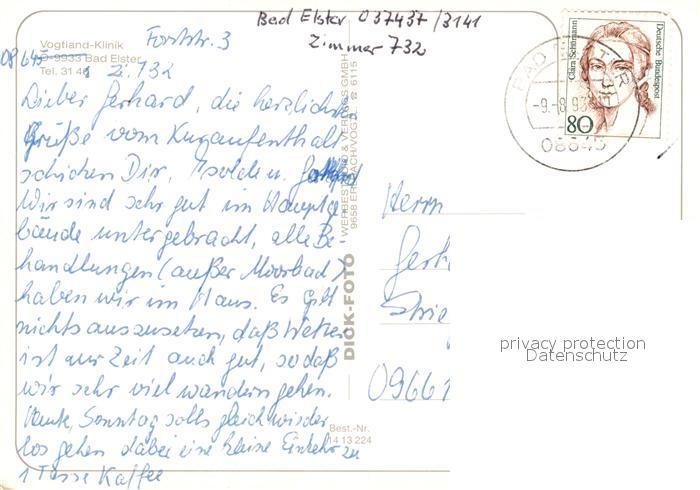 Bad Elster 037437/3141
Zimmer 732
Vogtland-Klinik
Forststr. 3
08645
O-9933 Bad Elster
Tel. 31 41
Zi. 732
Lieber Gerhard, die herzlichste
Grüße vom Kuraufenthalt
schicken Dir, Isolde u.
Wir sind sehr gut im Hauptge
bäude untergebracht, alle Be-
handlungen (außer Moorbad)
haben wir im Haus. Es gibt
nichts auszusetzen, daß Wetter
ist zur Zeit auch gut, sodaß
wir sehr viel wandern gehen.
Heute, Sonntag solls gleich wieder
los gehen dabei eine kleine Einkehr zu
1 Tasse Kaffee
WERBESTUDIO & VERLAGS GMBH
9658 ERLBACH/VOGTL. ☎ 6115
DICK-FOTO
Best.-Nr.
14 13 224
Clara Schumann
Deutsche Bundespost
80
BAD ELSTER
-9.-8.93
08645
Herrn
Gerh
09661
privacy protection
Datenschutz